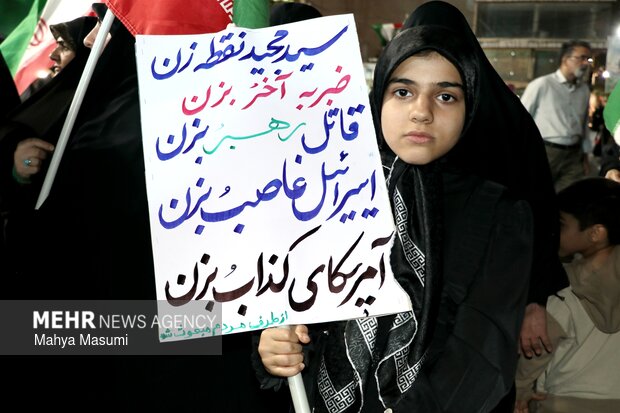 سید مجید نقطه زن
ضربه آخرُ بزن
قاتل رهبرُ بزن
اسرائیل غاصبُ بزن
آمریکای کذابُ بزن
از طرف مردم مبعوث
MEHR NEWS AGENCY
Mahya Masumi